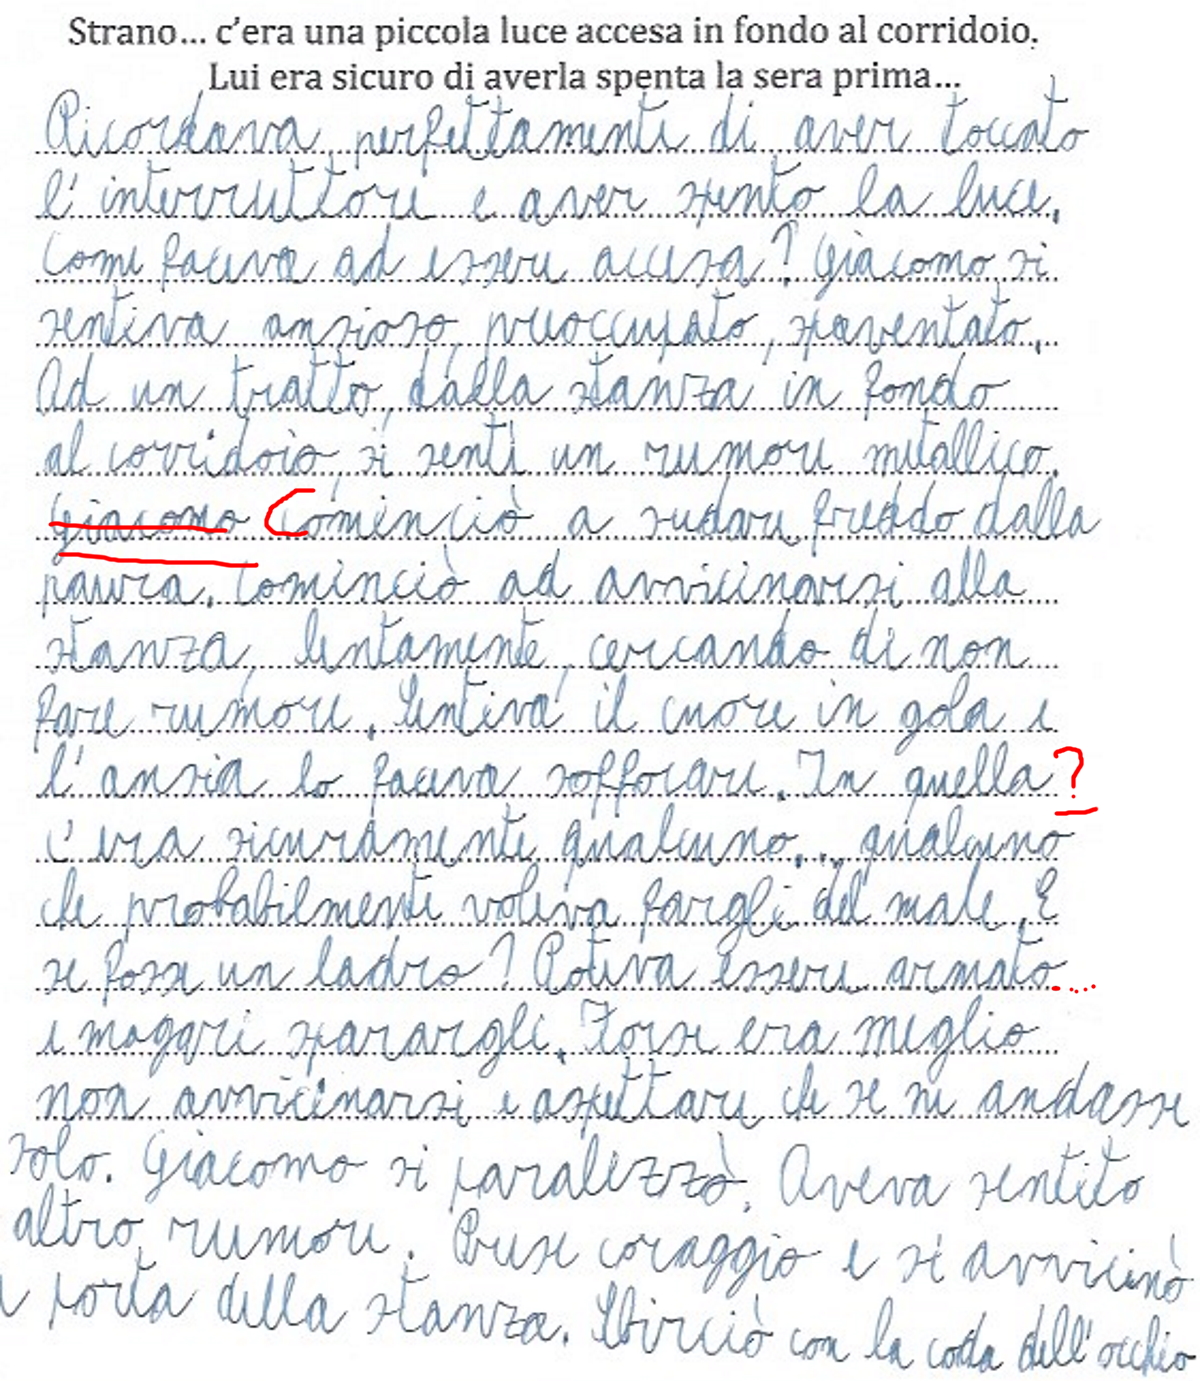 Strano... c'era una piccola luce accesa in fondo al corridoio.
Lui era sicuro di averla spenta la sera prima...
Ricordava perfettamente di aver toccato
l'interruttore e aver spento la luce.
Come faceva ad essere accesa? Giacomo si
sentiva ansioso, preoccupato, spaventato.
Ad un tratto, dalla stanza in fondo
al corridoio, si sentì un rumore metallico.
Giacomo Cominciò a sudare freddo dalla
paura. Cominciò ad avvicinarsi alla
stanza, lentamente, cercando di non
fare rumore. Sentiva il cuore in gola e
l'ansia lo faceva soffocare. In quella ?
c'era sicuramente qualcuno... qualcuno
che probabilmente voleva fargli del male. E
se fosse un ladro? Poteva essere armato...
e magari sparargli. Forse era meglio
non avvicinarsi e aspettare che se ne andasse
solo. Giacomo si paralizzò. Aveva sentito
altro rumore. Prese coraggio e si avvicinò
porta della stanza. Sbirciò con la coda dell'occhio